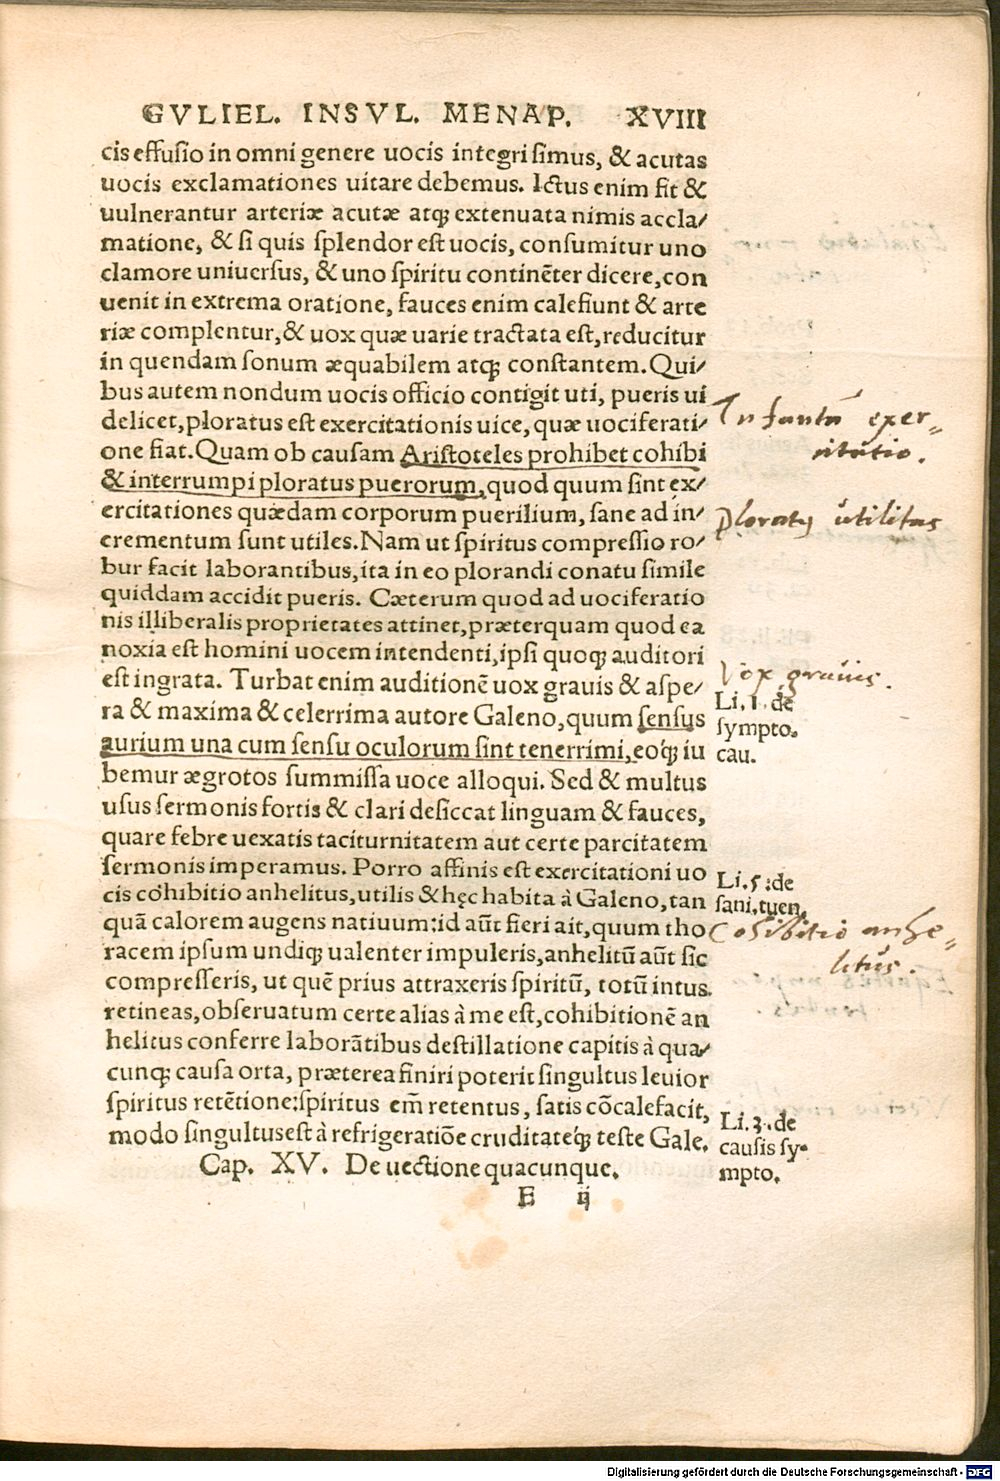 GVLIEL. INSVL. MENAP. XVIII
cis effusio in omni genere uocis integri simus, & acutas
uocis exclamationes uitare debemus. Ictus enim fit &
uulnerantur arteriæ acutæ atq; extenuata nimis accla/
matione, & si quis splendor est uocis, consumitur uno
clamore uniuersus, & uno spiritu continẽter dicere, con
uenit in extrema oratione, fauces enim calefiunt & arte
riæ complentur, & uox quæ uarie tractata est, reducitur
in quendam sonum æquabilem atq; constantem. Qui/
bus autem nondum uocis officio contigit uti, pueris ui
delicet, ploratus est exercitationis uice, quæ uociferati/
one fiat. Quam ob causam Aristoteles prohibet cohibi
& interrumpi ploratus puerorum, quod quum sint ex/
ercitationes quædam corporum puerilium, sane ad in/
crementum sunt utiles. Nam ut spiritus compressio ro/
bur facit laborantibus, ita in eo plorandi conatu simile
quiddam accidit pueris. Cæterum quod ad uociferatio
nis illiberalis proprietates attinet, præterquam quod ea
noxia est homini uocem intendenti, ipsi quoq; auditori
est ingrata. Turbat enim auditionẽ uox grauis & aspe/
ra & maxima & celerrima autore Galeno, quum sensus
aurium una cum sensu oculorum sint tenerrimi, eoq́; iu
bemur ægrotos summissa uoce alloqui. Sed & multus
usus sermonis fortis & clari desiccat linguam & fauces,
quare febre uexatis taciturnitatem aut certe parcitatem
sermonis imperamus. Porro affinis est exercitationi uo
cis cohibitio anhelitus, utilis & hęc habita à Galeno, tan
quã calorem augens natiuum: id aũt fieri ait, quum tho
racem ipsum undiq; ualenter impuleris, anhelitũ aũt sic
compresseris, ut quẽ prius attraxeris spiritũ, totũ intus
retineas, obseruatum certe alias à me est, cohibitionẽ an
helitus conferre laborãtibus destillatione capitis à qua/
cunq; causa orta, præterea finiri poterit singultus leuior
spiritus retẽtione: spiritus em̃ retentus, satis cõcalefacit,
modo singultus est à refrigeratiõe cruditateq́; teste Gale.
Cap. XV. De uectione quacunque.
E ij
Infantũ exer-
citatio.
ploratus utilitas
Vox grauis.
Li. 1. de
sympto.
cau.
Li. 5. de
sani. tuen.
Cohibitio anhe-
litus.
Li. 3. de
causis sy-
mpto.
Digitalisierung gefördert durch die Deutsche Forschungsgemeinschaft - DFG